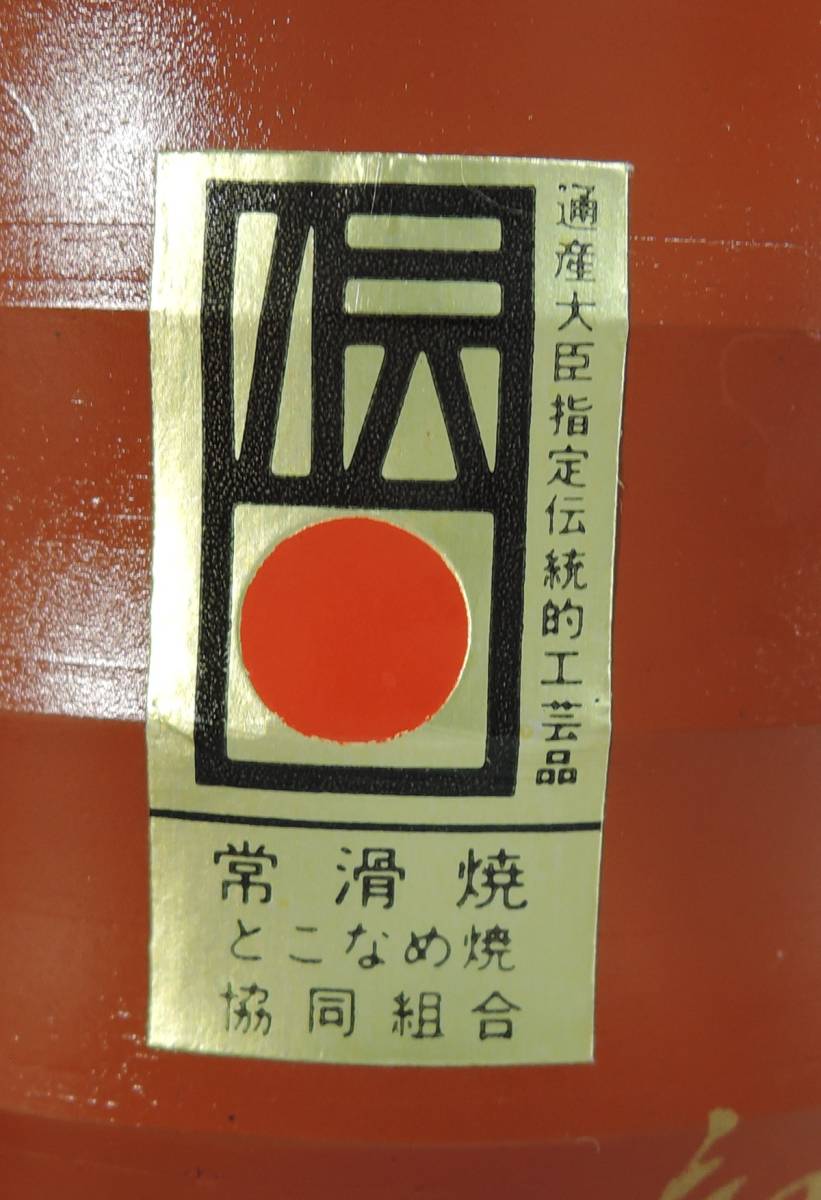 通産大臣指定伝統的工芸品
常滑焼
とこなめ焼
協同組合